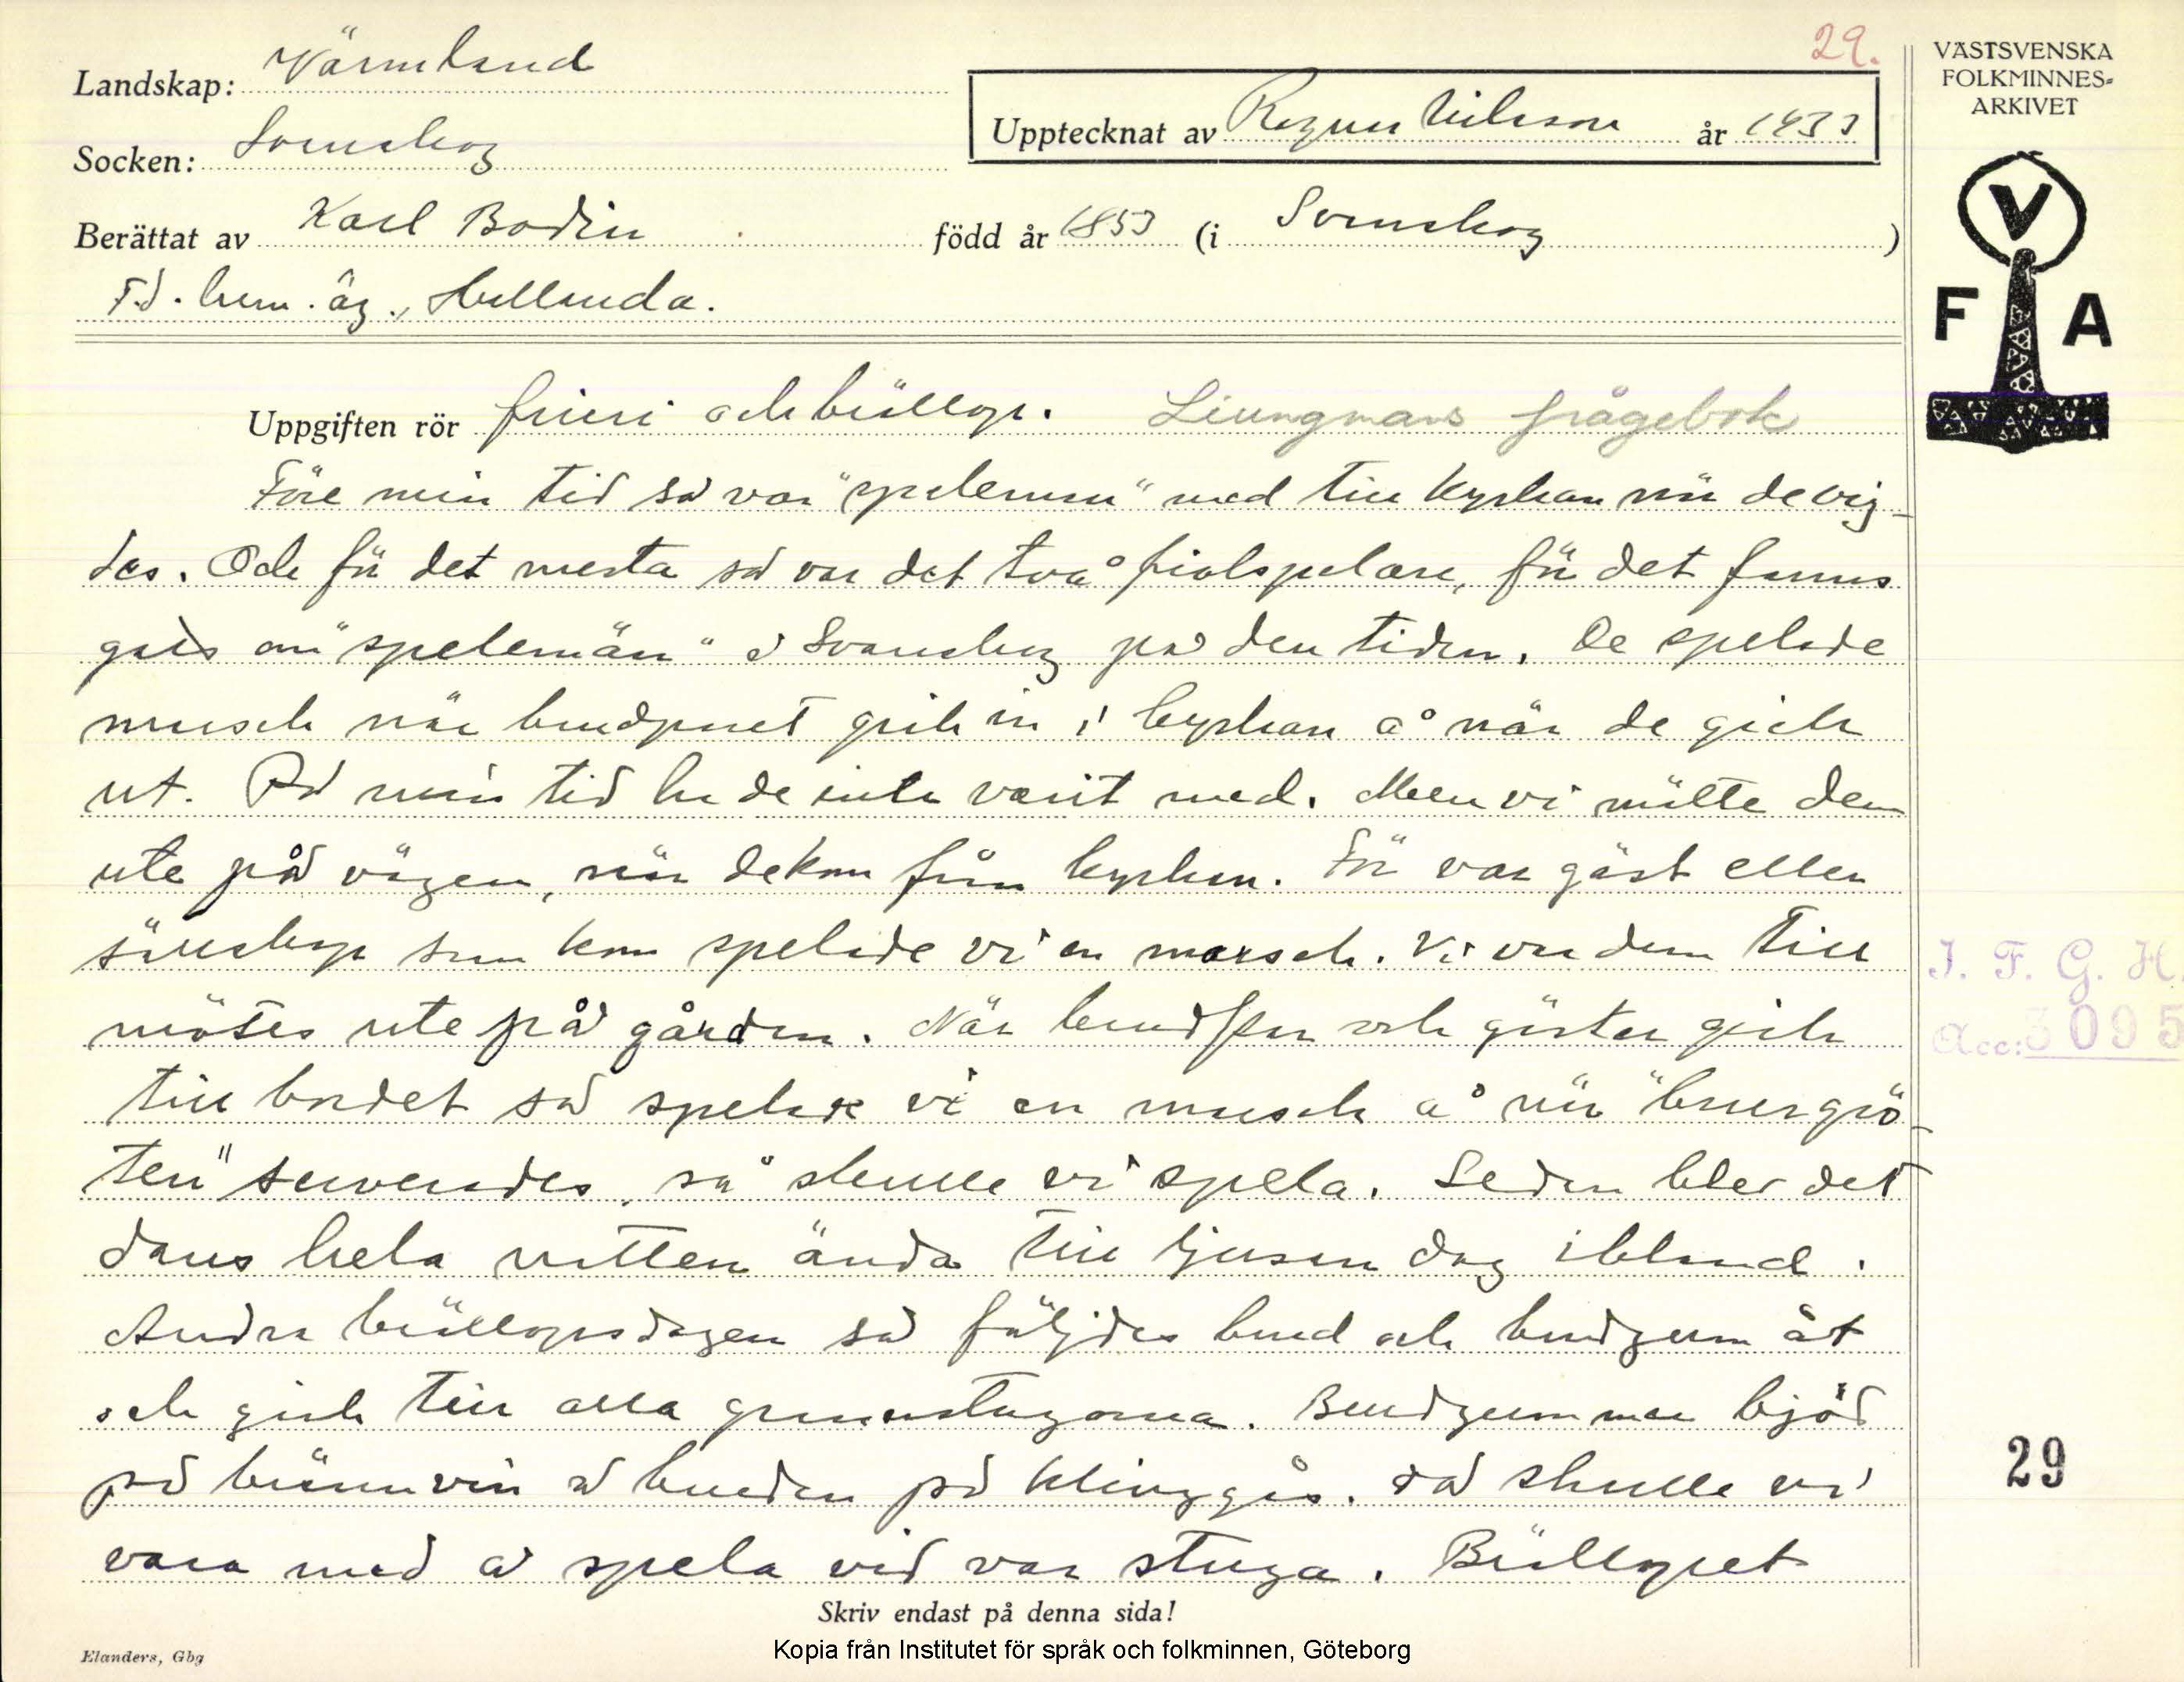 29.
Landskap: Värmland
Socken: Svanskog
Upptecknat av Ragnar Nilsson år 1933
Berättat av Karl Bodin född år 1853 (i Svanskog)
F.d. hem.äg., Hillanda.
Uppgiften rör frieri och bröllop. Liungmans frågebok
Före min tid så var "spelemän" med till kyrkan när de vig-
des. Och för det mesta så var det två fiolspelare, för det fanns
gått om "spelemän" i Svanskog på den tiden. De spelade
marsch när brudparet gick in i kyrkan å när de gick
ut. På min tid ha de inte varit med. Men vi mötte dem
ute på vägen, när de kom från kyrkan. För var gäst eller
sällskap som kom spelade vi en marsch. Vi var dem till
mötes ute på gården. När brudpar och gäster gick
till bordet så spelade vi en marsch å när "brurgrö-
ten" serverades, så skulle vi spela. Sedan blev det
dans hela natten ända till ljusan dag ibland.
Andra bröllopsdagen så följdes brud och brudgum åt
och gick till alla grannstugorna. Brudgummen bjöd
på brännvin å bruden på klinggås. Så skulle vi
vara med å spela vid var stuga. Bröllopet
Skriv endast på denna sida!
Elanders, Gbg
Kopia från Institutet för språk och folkminnen, Göteborg
VÄSTSVENSKA
FOLKMINNES-
ARKIVET
V
F A
I. F. G. H.
Acc: 3095
29